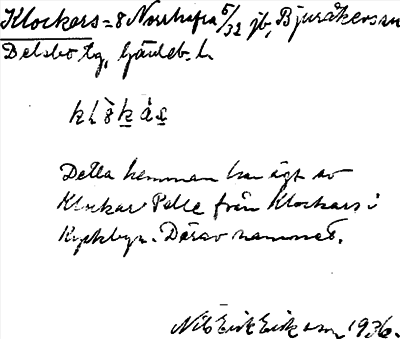 Klockars = 8 Norrhafra 5/32 jb, Bjuråkers sn
Delsbo tg, Gävleb. l.
Detta hemman har ägt av
Klockar Pelle från Klockars i
Kyrkbyn. Därav namnet.
Nils Erik Eriksson 1936.